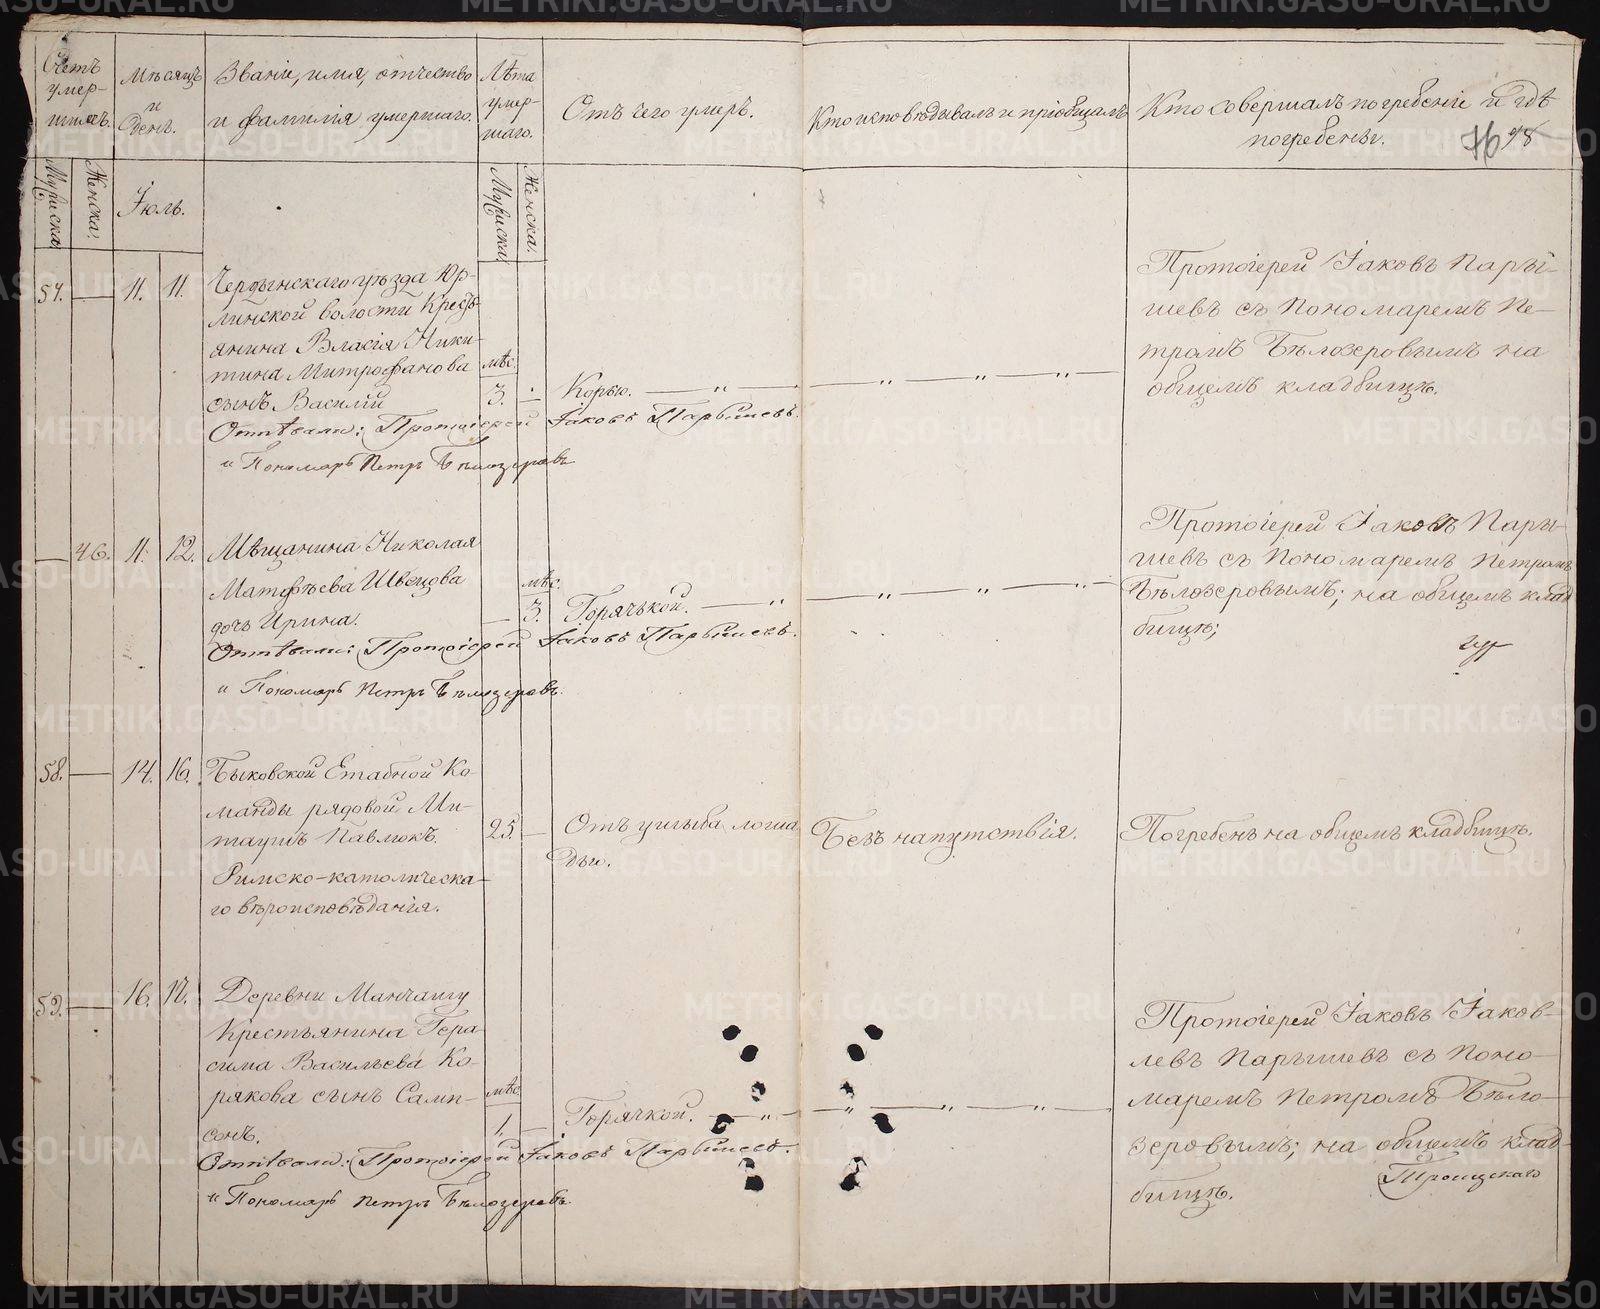 METRIKI.GASO-URAL.RU
Счетъ умер-шихъ.
Мѣсяцъ и день.
Званіе, имя, отчество и фамилія умершаго.
Лѣта умер-шаго.
Отъ чего умеръ.
Кто исповѣдывалъ и пріобщалъ
Кто совершалъ погребеніе и гдѣ погребены.
76
Мужска.
Женска.
Іюль.
Мужска.
Женска.
57.
11. 11.
Чердынскаго уѣзда Юр-
линской волости Крестъ-
янина Власія Ники-
тина Митрофанова
сынъ Василій
Отпѣвали: Протоіерей Іаковъ Парышевъ.
и Пономарь Петръ Бѣлозеровъ
мѣс.
3.
Корью.
Протоіерей Іаковъ Пары-
шевъ съ Пономаремъ Пе-
тромъ Бѣлозеровымъ на
общемъ кладбищѣ.
46. 11. 12.
Мѣщанина Николая
Матфѣева Швецова
дочь Ирина.
Отпѣвали: Протоіерей Іаковъ Парышевъ.
и Пономарь Петръ Бѣлозеровъ.
мѣс.
3.
Горячькой.
Протоіерей Іаковъ Пары-
шевъ съ Пономаремъ Петромъ
Бѣлозеровымъ; на общемъ клад
бищѣ;
58.
14. 16.
Быковской Етабной Ко-
манды рядовой Ми-
таушъ Павлюкъ.
Римско-католическа-
го вѣроисповѣданія.
25.
Отъ ушыба лоша
дью.
Безъ напутствія.
Погребенъ на общемъ кладбищѣ.
59.
16. 17.
Деревни Манчашу
Крестьянина Гера-
сима Васильева Ко-
рякова сынъ Самп-
сонъ.
Отпѣвали: Протоіерей Іаковъ Парышевъ.
и Пономарь Петръ Бѣлозеровъ.
мѣс.
1.
Горячкой.
Протоіерей Іаковъ Іаков-
левъ Парышевъ съ Поно-
маремъ Петромъ Бѣло-
зеровымъ; на общемъ клад-
бищѣ.
Троицкаго